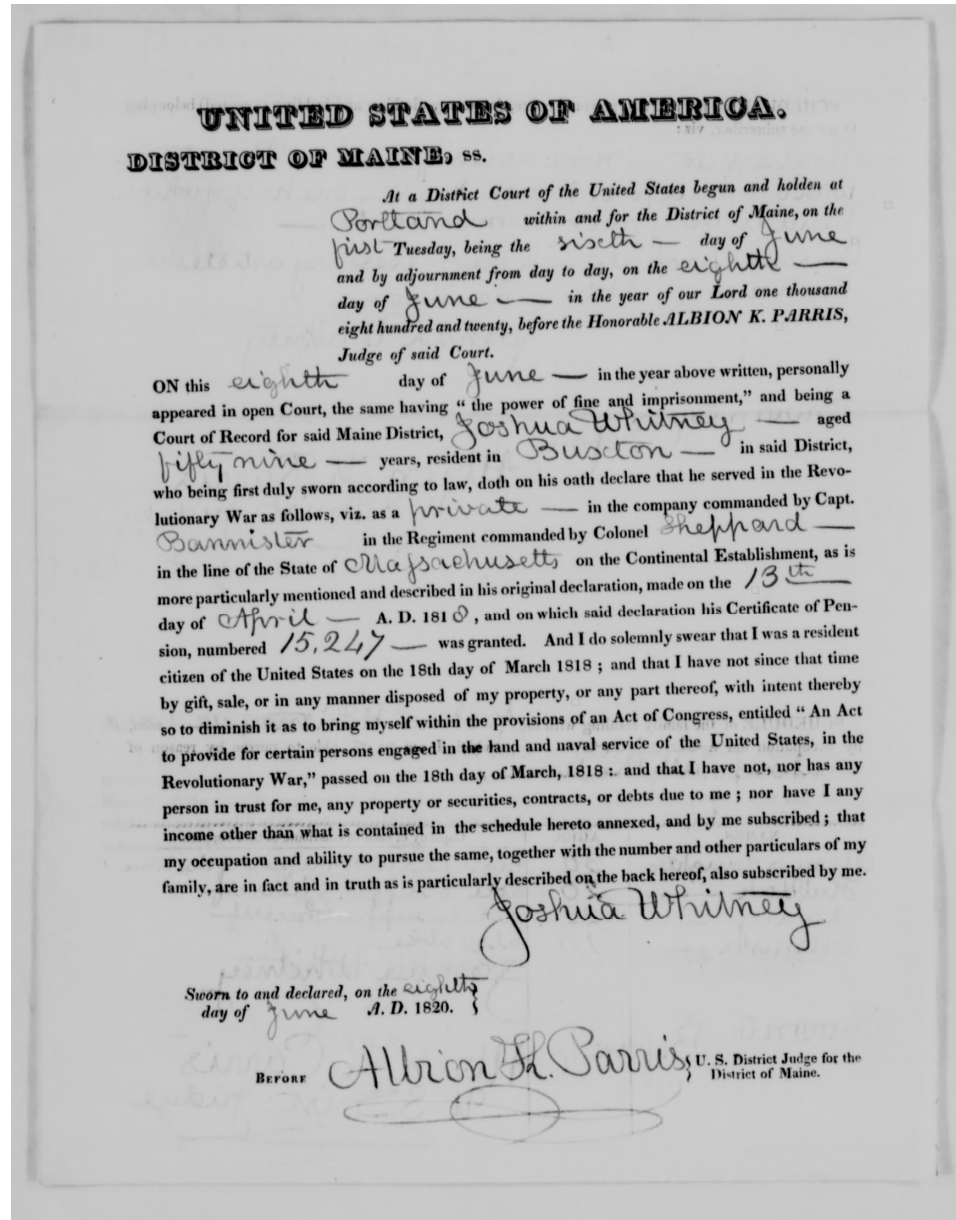 UNITED STATES OF AMERICA.
DISTRICT OF MAINE, ss.
At a District Court of the United States begun and holden at
Portland within and for the District of Maine, on the
first Tuesday, being the sixth — day of June
and by adjournment from day to day, on the eighth —
day of June — in the year of our Lord one thousand
eight hundred and twenty, before the Honorable ALBION K. PARRIS,
Judge of said Court.
ON this eighth day of June — in the year above written, personally
appeared in open Court, the same having “ the power of fine and imprisonment,” and being a
Court of Record for said Maine District, Joshua Whitney — aged
fifty nine — years, resident in Buxton — in said District,
who being first duly sworn according to law, doth on his oath declare that he served in the Revo-
lutionary War as follows, viz. as a private — in the company commanded by Capt.
Bannister in the Regiment commanded by Colonel Sheppard —
in the line of the State of Massachusetts on the Continental Establishment, as is
more particularly mentioned and described in his original declaration, made on the 13th
day of April — A. D. 1818, and on which said declaration his Certificate of Pen-
sion, numbered 15,247 — was granted. And I do solemnly swear that I was a resident
citizen of the United States on the 18th day of March 1818 ; and that I have not since that time
by gift, sale, or in any manner disposed of my property, or any part thereof, with intent thereby
so to diminish it as to bring myself within the provisions of an Act of Congress, entitled “ An Act
to provide for certain persons engaged in the land and naval service of the United States, in the
Revolutionary War,” passed on the 18th day of March, 1818 : and that I have not, nor has any
person in trust for me, any property or securities, contracts, or debts due to me ; nor have I any
income other than what is contained in the schedule hereto annexed, and by me subscribed ; that
my occupation and ability to pursue the same, together with the number and other particulars of my
family, are in fact and in truth as is particularly described on the back hereof, also subscribed by me.
Joshua Whitney
Sworn to and declared, on the eighth
day of June A. D. 1820.
BEFORE Albion K. Parris, U. S. District Judge for the
District of Maine.